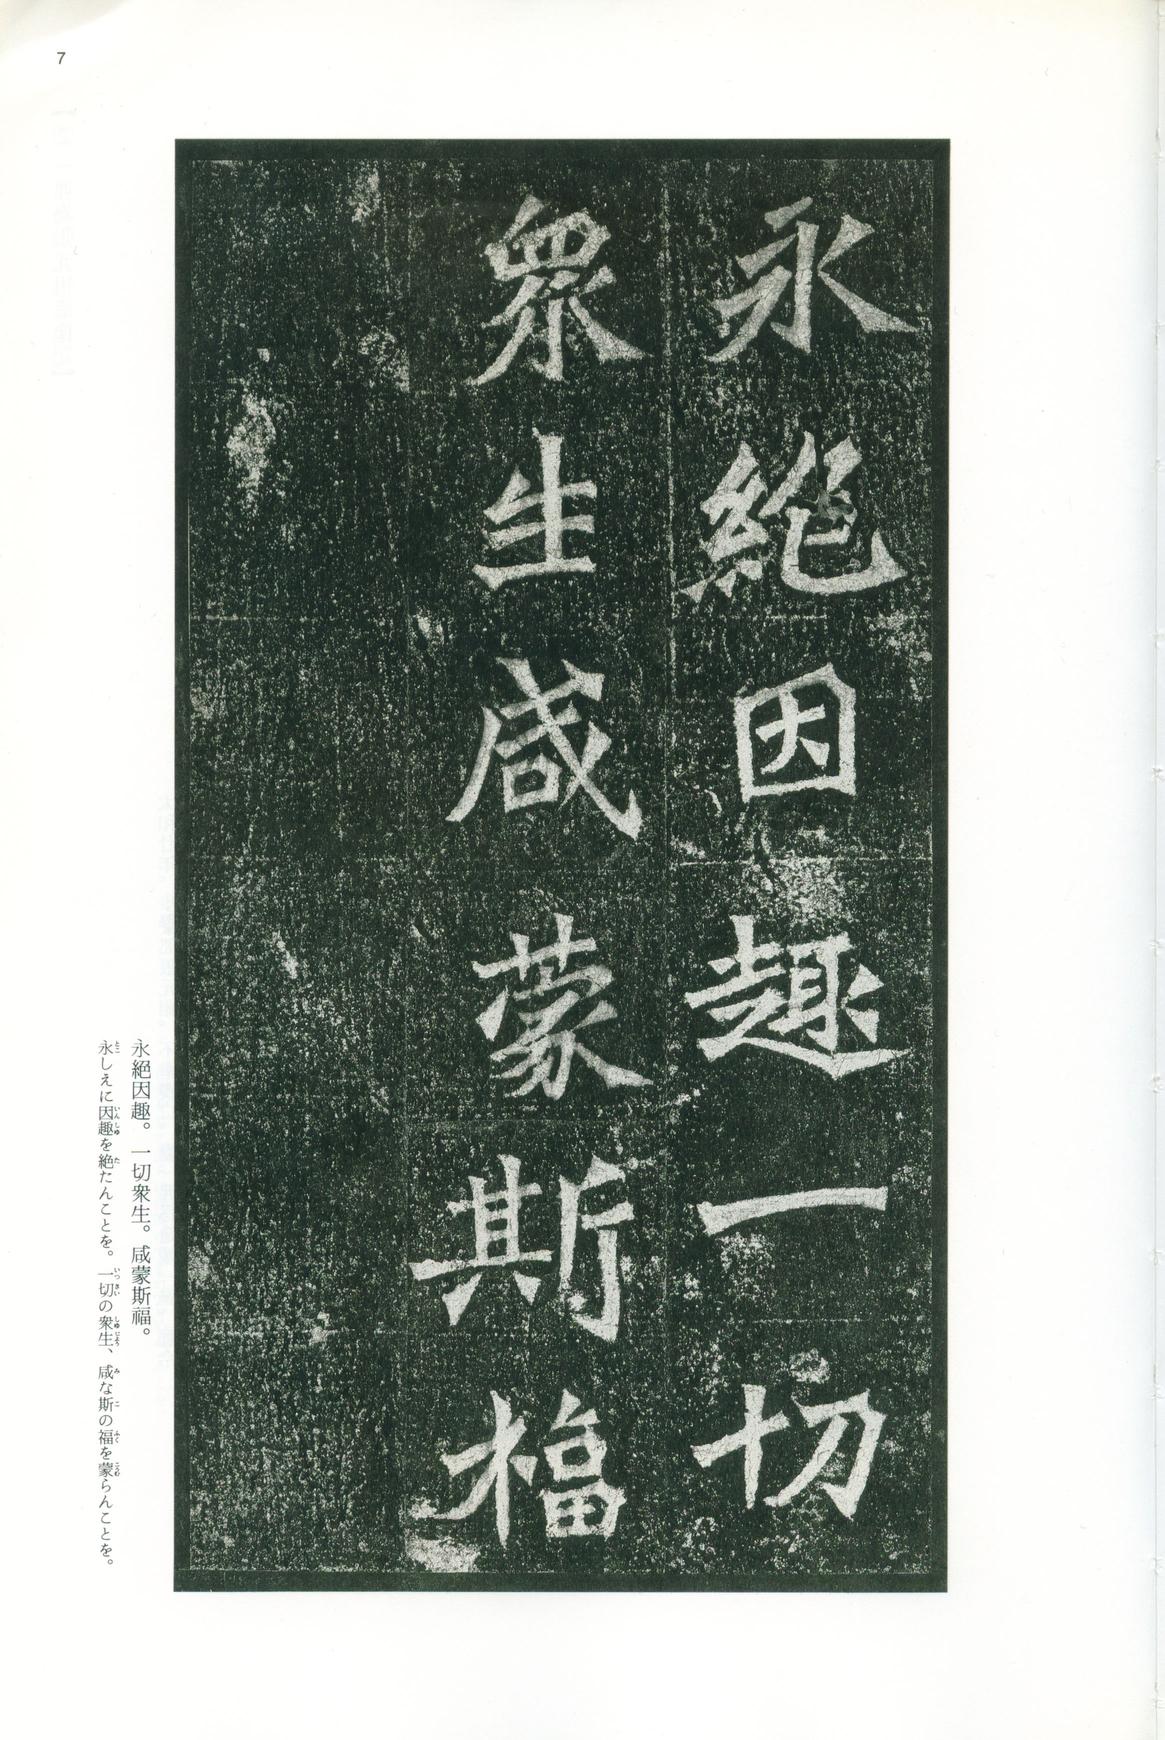 7
永絶因趣一切
衆生咸蒙斯福
永絕因趣。一切衆生。咸蒙斯福。
永しえに因趣を絶たんことを。一切の衆生、咸な斯の福を蒙らんことを。